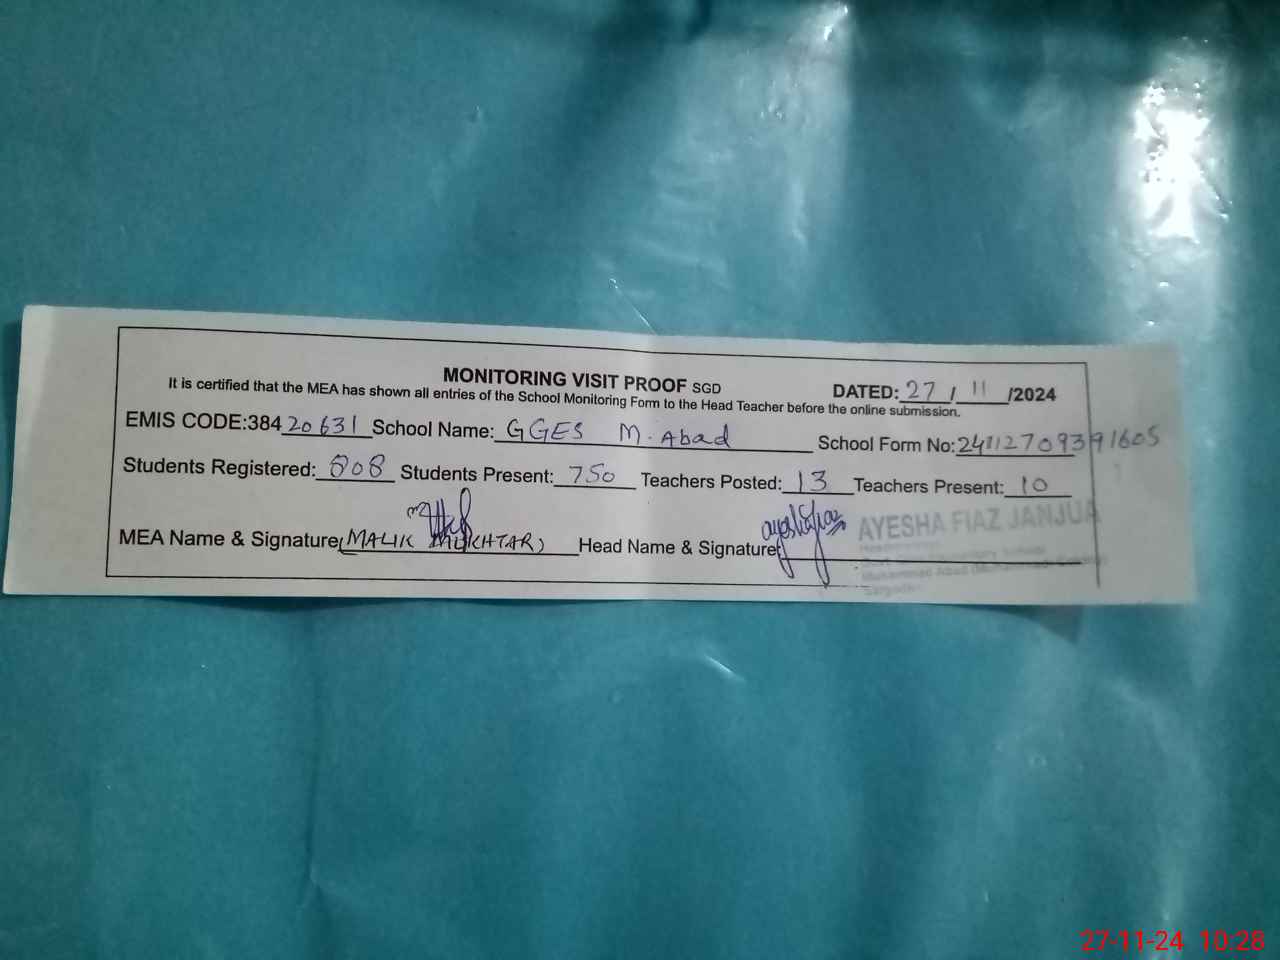 MONITORING VISIT PROOF SGD
DATED: 27 / 11 /2024
It is certified that the MEA has shown all entries of the School Monitoring Form to the Head Teacher before the online submission.
EMIS CODE:384 20631 School Name: GGES M. Abad School Form No: 24112709391605
Students Registered: 808 Students Present: 750 Teachers Posted: 13 Teachers Present: 10
MEA Name & Signature (MALIK MUKHTAR) Head Name & Signature: ayeshafiaz AYESHA FIAZ JANJUA
Muhammad Abad
27-11-24 10:28